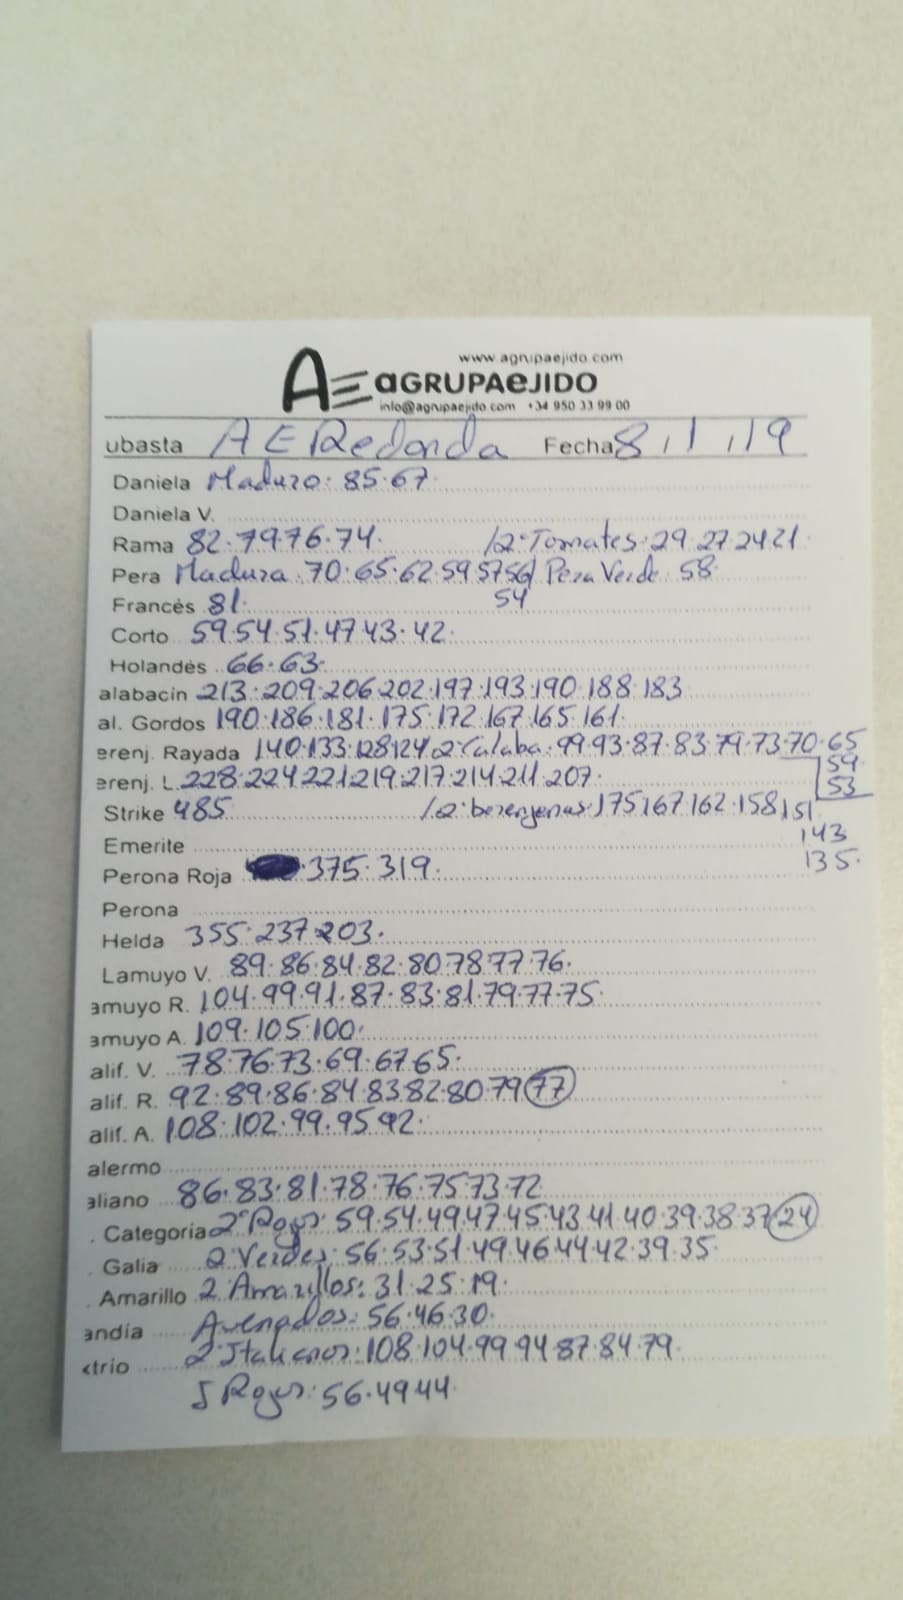 www.agrupaejido.com
AE aGRUPAeJIDO
info@agrupaejido.com +34 950 33 99 00
ubasta AE Redonda Fecha 8, 1, 19
Daniela Maduro: 85.67.
Daniela V.
Rama 82.79.76.74. /2ª Tomates: 29.27.24.21
Pera Madura: 70.65.62.59.57.56/ Pera Verde: 58.
54
Francés 81.
Corto 59.54.51.47.43.42.
Holandés 66.63.
alabacín 213.209.206.202.197.193.190.188.183
al. Gordos 190.186.181.175.172.167.165.161.
erenj. Rayada 140.133.128.124 2ª Calaba: 99.93.87.83.79.73.70.65
59.
erenj. L 228.224.221.219.217.214.211.207.
53
Strike 485 /2ª berenjenas: 175.167.162.158.151
143
Emerite
135.
Perona Roja .375.319.
Perona
Helda 355.237.203.
Lamuyo V. 89.86.84.82.80.78.77.76.
amuyo R. 104.99.91.87.83.81.79.77.75.
amuyo A. 109.105.100.
alif. V. 78.76.73.69.67.65.
alif. R. 92.89.86.84.83.82.80.79 77
alif. A. 108.102.99.95.92.
alermo
aliano 86.83.81.78.76.75.73.72
. Categoría 2ª Rojos: 59.54.49.47.45.43.41.40.39.38.37 24
. Galia 2 Verdes: 56.53.51.49.46.44.42.39.35.
. Amarillo 2 Amarillos: 31.25.19.
andía Avenados: 56.46.30.
ktrio 2 Italianos: 108.104.99.94.87.84.79.
5 Rojos: 56.49.44.